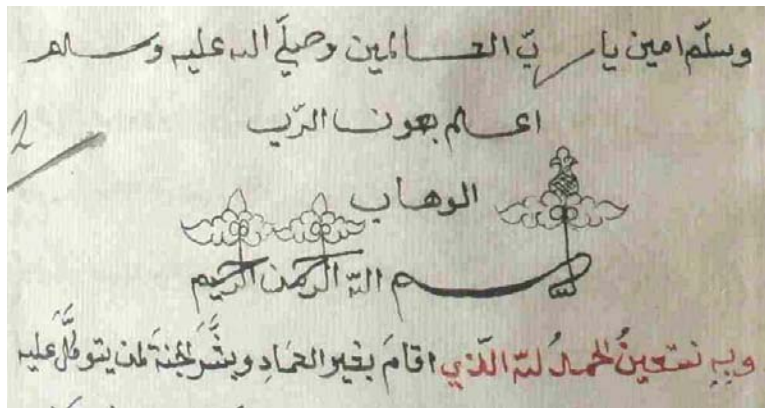 وسلّم امين يا ربّ العــالمين وصلّي الله عليه وســلم
اعــلم بعونــا الرّب
الوهــاب
2
بســم الله الرحمن الرحيم
وبهِ نستعينُ الحمدُ للّه الّذي اقامَ بغير العمَادِ وبشَّرَ لجنةَ لمن يتوكَّلَ عليه